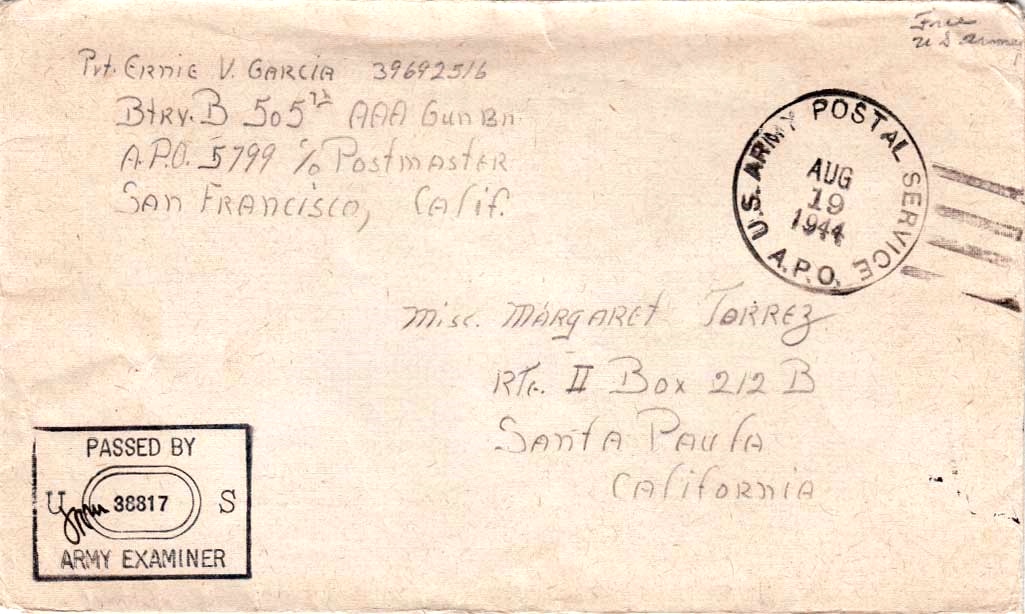 Free
U S Army
Pvt. Ernie V. Garcia 39692516
Btry. B 505th AAA Gun Bn.
A.P.O. 5799 c/o Postmaster
San Francisco, Calif.
U.S. ARMY POSTAL SERVICE
AUG
19
1944
A.P.O.
Misc. Margaret Torrez
Rte. II Box 212 B
Santa Paula
California
PASSED BY
U 38817 S
ARMY EXAMINER